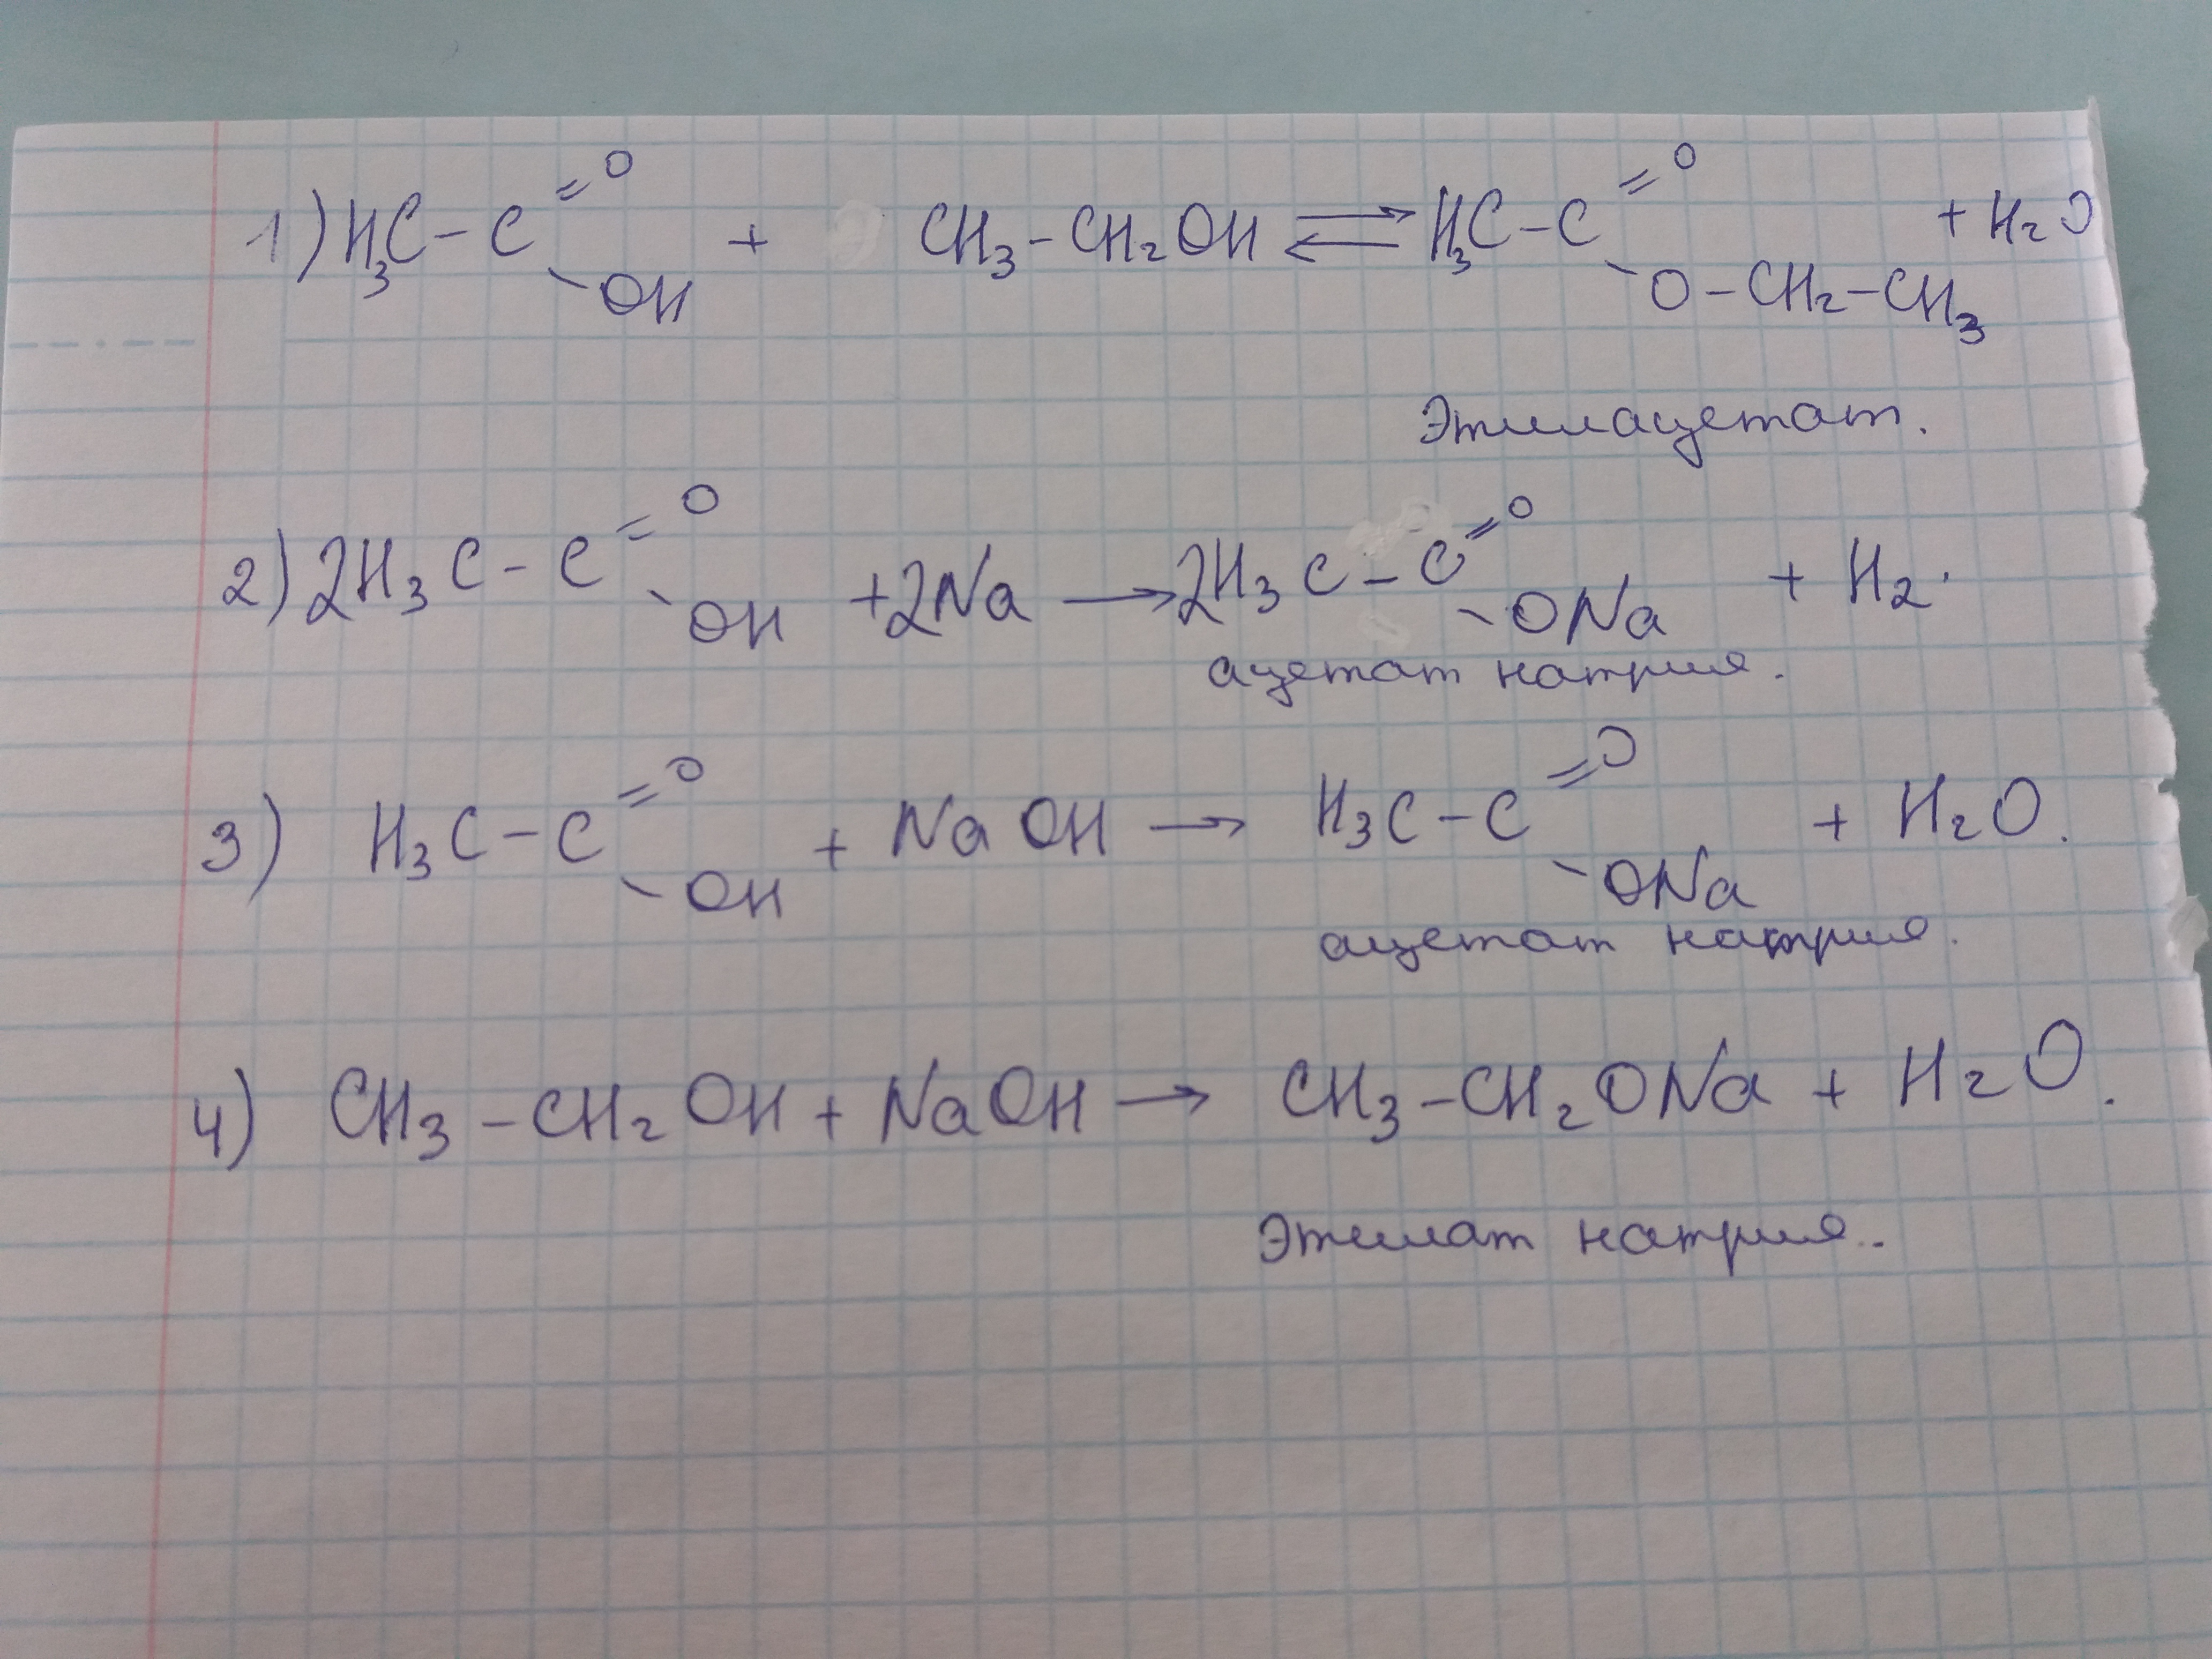 1) H3C-C=O-OH + CH3-CH2OH ⇌ H3C-C=O-O-CH2-CH3 + H2O
Этилацетат.
2) 2H3C-C=O-OH +2Na → 2H3C-C=O-ONa + H2.
ацетат натрия.
3) H3C-C=O-OH + NaOH → H3C-C=O-ONa + H2O.
ацетат натрия.
4) CH3-CH2OH + NaOH → CH3-CH2ONa + H2O.
Этилат натрия.